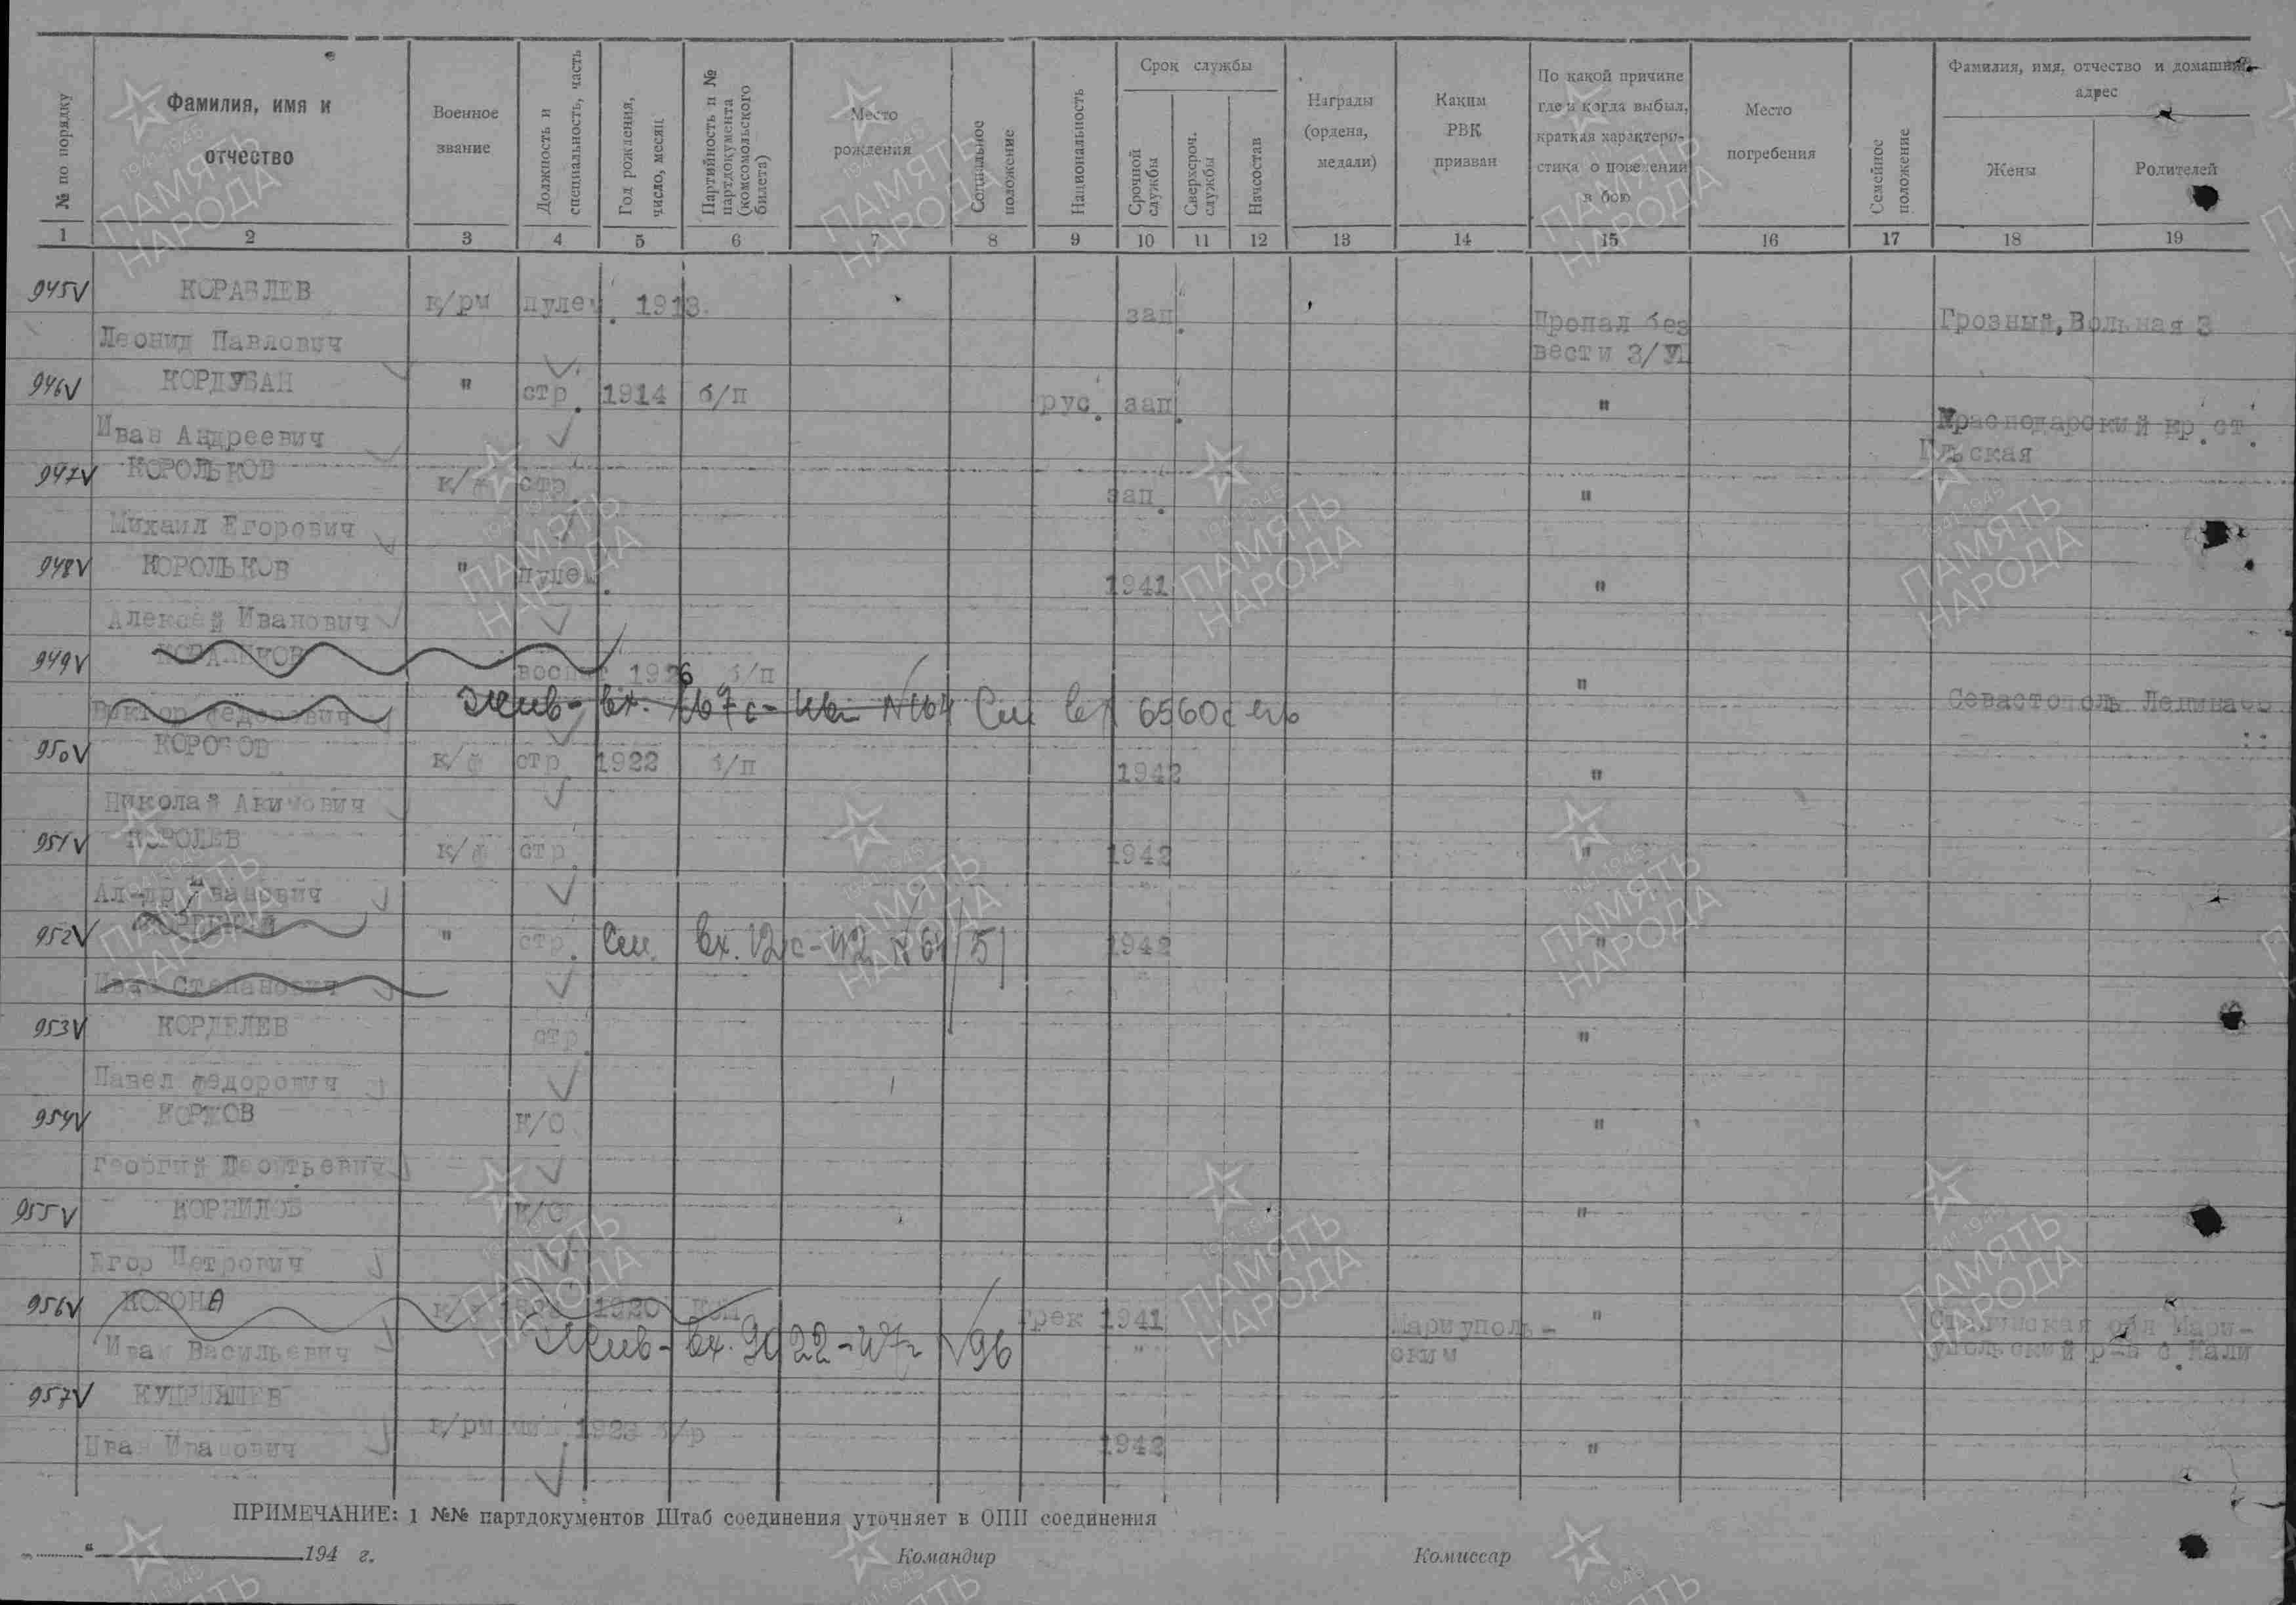 № по порядку
Фамилия, имя и
отчество
Военное
звание
Должность и
специальность, часть
Год рождения,
число, месяц
Партийность и №
партдокумента
(комсомольского
билета)
Место
рождения
Социальное
положение
Национальность
Срок службы
Срочной
службы
Сверхсроч.
службы
Начсостав
Награды
(ордена,
медали)
Каким
РВК
призван
По какой причине
где и когда выбыл,
краткая характери-
стика о поведении
в бою
Место
погребения
Семейное
положение
Фамилия, имя, отчество и домашний
адрес
Жены
Родителей
1 2 3 4 5 6 7 8 9 10 11 12 13 14 15 16 17 18 19
945 КОРАБЛЕВ
к/рм пулем. 1913 зап. Пропал без Грозный, Вольная 3
Леонид Павлович вести 3/УП
946 КОРДУБАН
" стр. 1914 б/п рус. зап. "
Иван Андреевич Краснодарский кр. ст.
947 КОРОЛЬКОВ
к/ф стр. зап. "
Михаил Егорович
948 КОРОЛЬКОВ
" пулем. 1941 "
Алексей Иванович
949
1926 б/п "
Виктор Федорович Жив - вх. См вх 6560с Севастополь
950 КОРОТОВ
к/ф стр 1922 б/п 1942 "
Николай Акимович
951 КОРОЛЕВ
к/ф стр. 1942 "
Ал-др Иванович
952
" стр. См. вх. 12 с-42 № 64/51 1942 "
Иван Степанович
953 КОРДЕЛЕВ
стр. "
Павел Федорович
954 КОРЖОВ
к/о "
Георгий Леонтьевич
955 КОРНИЛОВ
к/о "
Егор Петрович
956 КОРОНА
1920 ком грек 1941 Мариуполь- " Сталинская обл Мари-
Иван Васильевич Жив - вх. № 96 " ским упольский р-н с. Кали
957
к/рм 1923 б/р 1942 "
Иван Иванович
ПРИМЕЧАНИЕ: 1 №№ партдокументов Штаб соединения уточняет в ОПП соединения
" " 194 г. Командир Комиссар
1941-1945
ПАМЯТЬ
НАРОДА